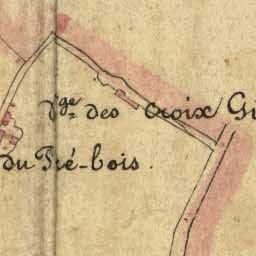 V.ge des Croix Gi
du Pré-bois.